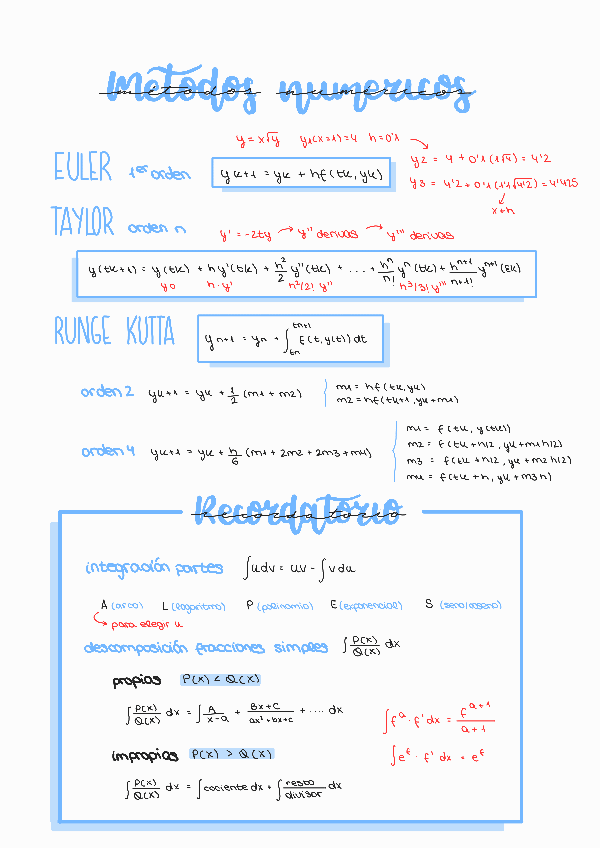 Métodos numéricos
métodos numéricos
y = x√y y1(x=1)=4 h=0'1
EULER 1er orden yk+1 = yk + hf(tk, yk)
y2 = 4 + 0'1(1√4) = 4'2
y3 = 4'2 + 0'1(1'1√4'2) = 4'425
x+h
TAYLOR orden n y' = -2ty → y'' derivas → y''' derivas
y(tk+1) = y(tk) + hy'(tk) + h²/2 y''(tk) + ... + hⁿ/n! yⁿ(tk) + hⁿ⁺¹/n+1! yⁿ⁺¹(εk)
y0 h·y' h²/2! y'' h³/3! y'''
RUNGE KUTTA yn+1 = yn + ∫tn tn+1 f(t, y(t)) dt
orden 2 yk+1 = yk + 1/2 (m1 + m2)
m1 = hf(tk, yk)
m2 = hf(tk+1, yk+m1)
orden 4 yk+1 = yk + h/6 (m1 + 2m2 + 2m3 + m4)
m1 = f(tk, y(tk))
m2 = f(tk + h/2, yk + m1 h/2)
m3 = f(tk + h/2, yk + m2 h/2)
m4 = f(tk + h, yk + m3 h)
Recordatorio
recordatorio
integración partes ∫udv = uv - ∫vdu
A (arco) L (logaritmo) P (polinomio) E (exponencial) S (seno/coseno)
para elegir u
descomposición fracciones simples ∫P(x)/Q(x) dx
propias P(x) < Q(x)
∫P(x)/Q(x) dx = ∫A/x-a + Bx+C/ax²+bx+c + .... dx
∫fᵃ · f' dx = fᵃ⁺¹/a+1
impropias P(x) > Q(x)
∫eᶠ · f' dx = eᶠ
∫P(x)/Q(x) dx = ∫cociente dx + ∫resto/divisor dx